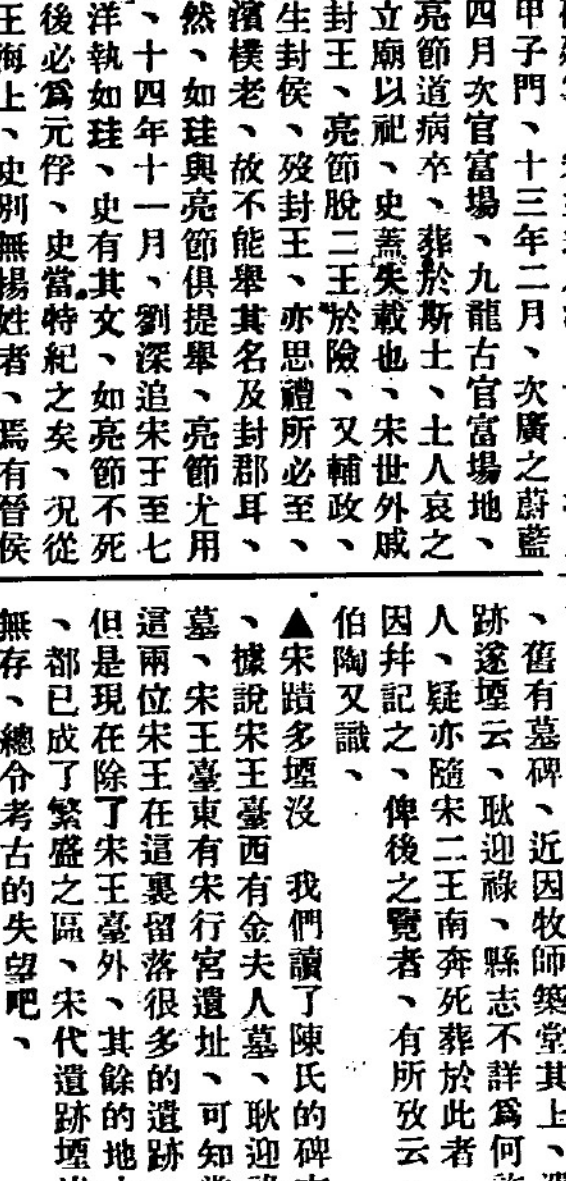 甲子門、十三年二月、次廣之蔚藍
四月次官富場、九龍古官富場地、
亮節道病卒、葬於斯土、土人哀之
立廟以祀、史蓋失載也、宋世外戚
封王、亮節脫二王於險、又輔政、
生封侯、歿封王、亦思禮所必至、
濱樸老、故不能舉其名及封郡耳、
然、如珪與亮節俱提舉、亮節尤用
、十四年十一月、劉深追宋王至七
洋執如珪、史有其文、如亮節不死
後必爲元俘、史當特紀之矣、況從
王海上、史別無楊姓者、焉有晉侯
、舊有墓碑、近因牧師築堂其上、
跡遂堙云、耿迎祿、縣志不詳爲何
人、疑亦隨宋二王南奔死葬於此者
因幷記之、俾後之覽者、有所攷云
伯陶又識、
▲宋蹟多堙沒　我們讀了陳氏的碑
、據說宋王臺西有金夫人墓、耿迎
墓、宋王臺東有宋行宮遺址、可知
這兩位宋王在這裏留落很多的遺跡
但是現在除了宋王臺外、其餘的地
、都已成了繁盛之區、宋代遺跡堙
無存、總令考古的失望吧、